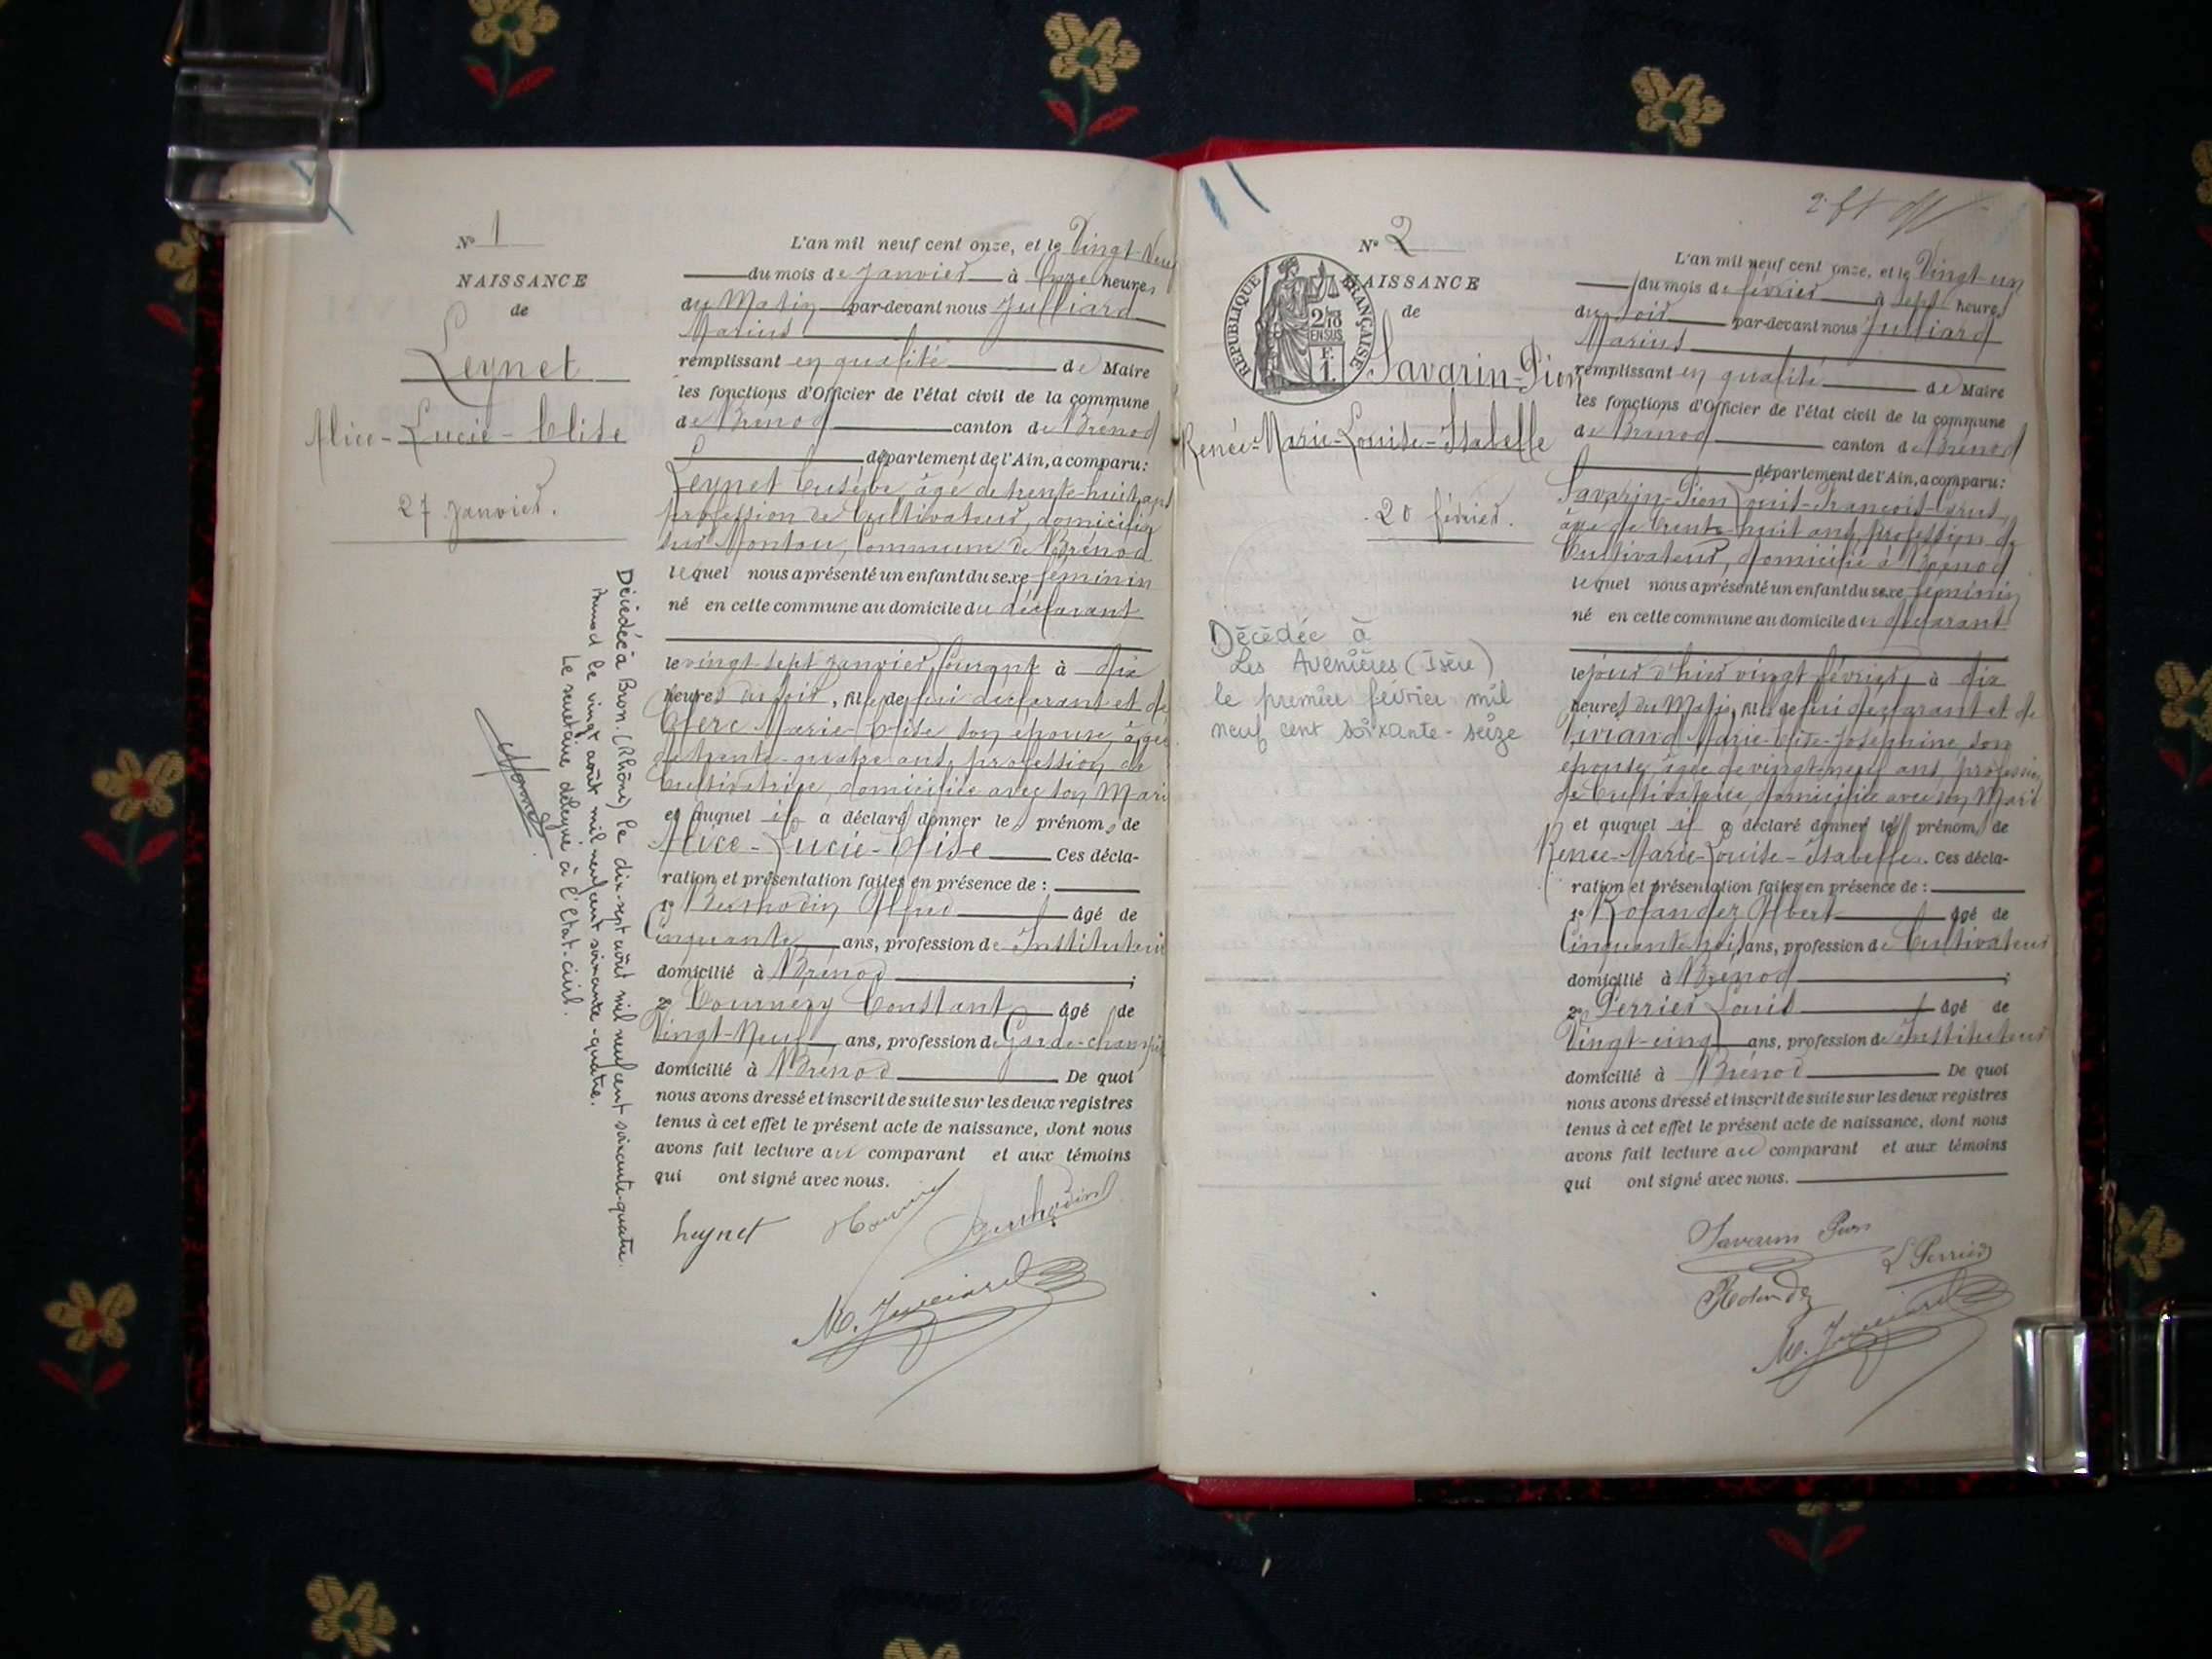 N° 1
NAISSANCE
de
Leynet
Alice-Lucie-Elise
27 Janvier.
Décédée à Bron (Rhône) le dix-sept août mil neuf cent soixante-quatre.
Brenod le vingt août mil neuf cent soixante-quatre.
Le secrétaire délégué à l'Etat-civil.
L'an mil neuf cent onze, et le Vingt-Neuf
du mois de Janvier à Onze heures
du Matin par-devant nous Julliard
Marius
remplissant en qualité de Maire
les fonctions d'Officier de l'état civil de la commune
de Brénod canton de Brénod
département de l'Ain, a comparu:
Leynet Eusèbe âgé de trente-huit ans
profession de Cultivateur, domicilié
sur Montou, Commune de Brénod
lequel nous a présenté un enfant du sexe féminin
né en cette commune au domicile du déclarant
le vingt-sept Janvier Courant à dix
heures du soir, fille de lui déclarant et de
Clerc Marie-Elise son épouse, âgée
de trente-quatre ans, profession de
Cultivatrice, domiciliée avec son Mari
et auquel il a déclaré donner les prénoms de
Alice-Lucie-Elise Ces décla-
ration et présentation faites en présence de :
1° Berthodin Alfred âgé de
Cinquante ans, profession de Instituteur
domicilié à Brénod ;
2° Constant âgé de
Vingt-Neuf ans, profession de Garde-champêtre
domicilié à Brénod De quoi
nous avons dressé et inscrit de suite sur les deux registres
tenus à cet effet le présent acte de naissance, dont nous
avons fait lecture au comparant et aux témoins
qui ont signé avec nous.
Leynet Berthodin
M. Julliard
2
N° 2
NAISSANCE
de
REPUBLIQUE FRANÇAISE
2/10
EN SUS
F.
1.
Savarin-Pion
Renée-Marie-Louise-Isabelle
20 février.
Décédée à
Les Avenières (Isère)
le premier février mil
neuf cent soixante-seize
L'an mil neuf cent onze, et le Vingt-un
du mois de février à sept heures
du soir par-devant nous Julliard
Marius
remplissant en qualité de Maire
les fonctions d'Officier de l'état civil de la commune
de Brénod canton de Brénod
département de l'Ain, a comparu:
Savarin-Pion Louis-François-
âgé de trente-huit ans, profession de
Cultivateur, domicilié à Brénod
lequel nous a présenté un enfant du sexe féminin
né en cette commune au domicile du déclarant
le jour d'hier vingt février, à dix
heures du Matin, fille de lui déclarant et de
Marie-Elise-Joséphine, son
épouse, âgée de vingt-neuf ans, profession
de Cultivatrice, domiciliée avec son Mari
et auquel il a déclaré donner les prénoms de
Renée-Marie-Louise-Isabelle. Ces décla-
ration et présentation faites en présence de :
1° Rolandez Albert âgé de
Cinquante-trois ans, profession de Cultivateur
domicilié à Brénod ;
2° Perrier Louis âgé de
Vingt-cinq ans, profession de Instituteur
domicilié à Brénod De quoi
nous avons dressé et inscrit de suite sur les deux registres
tenus à cet effet le présent acte de naissance, dont nous
avons fait lecture au comparant et aux témoins
qui ont signé avec nous.
Savarin Pion
L Perrier
Rolandez
M. Julliard